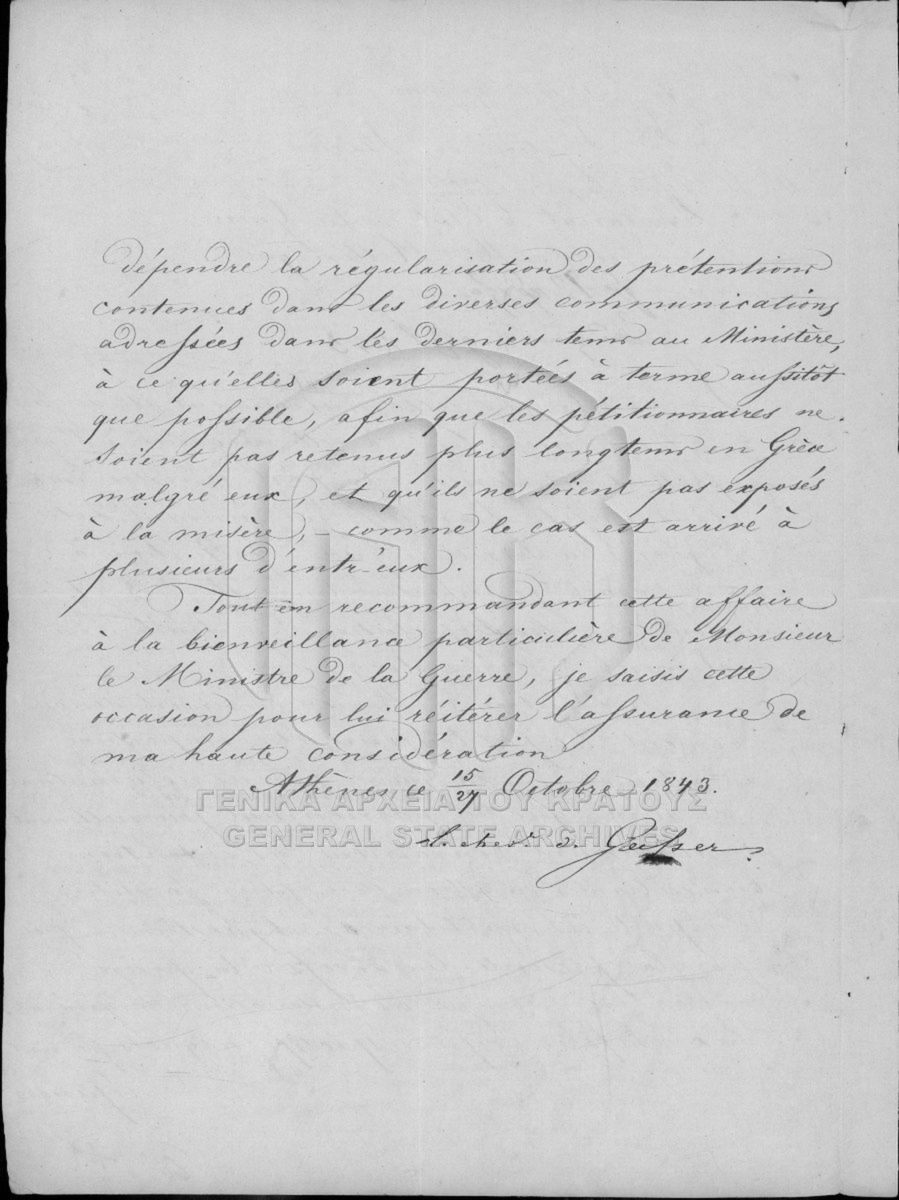 dépendre la régularisation des prétentions
contenues dans les diverses communications
adressées dans les derniers tems au Ministère,
à ce qu'elles soient portées à terme aussitôt
que possible, afin que les pétitionnaires ne
soient pas retenus plus longtems en Grèce
malgré eux, et qu'ils ne soient pas exposés
à la misère, – comme le cas est arrivé à
plusieurs d'entr-eux.
Tout en recommandant cette affaire
à la bienveillance particulière de Monsieur
le Ministre de la Guerre, je saisis cette
occasion pour lui réitérer l'assurance de
ma haute considération
Athènes ce 15/27 Octobre 1843.
ΓΕΝΙΚΑ ΑΡΧΕΙΑ ΤΟΥ ΚΡΑΤΟΥΣ
GENERAL STATE ARCHIVES
chev. d. Gasser